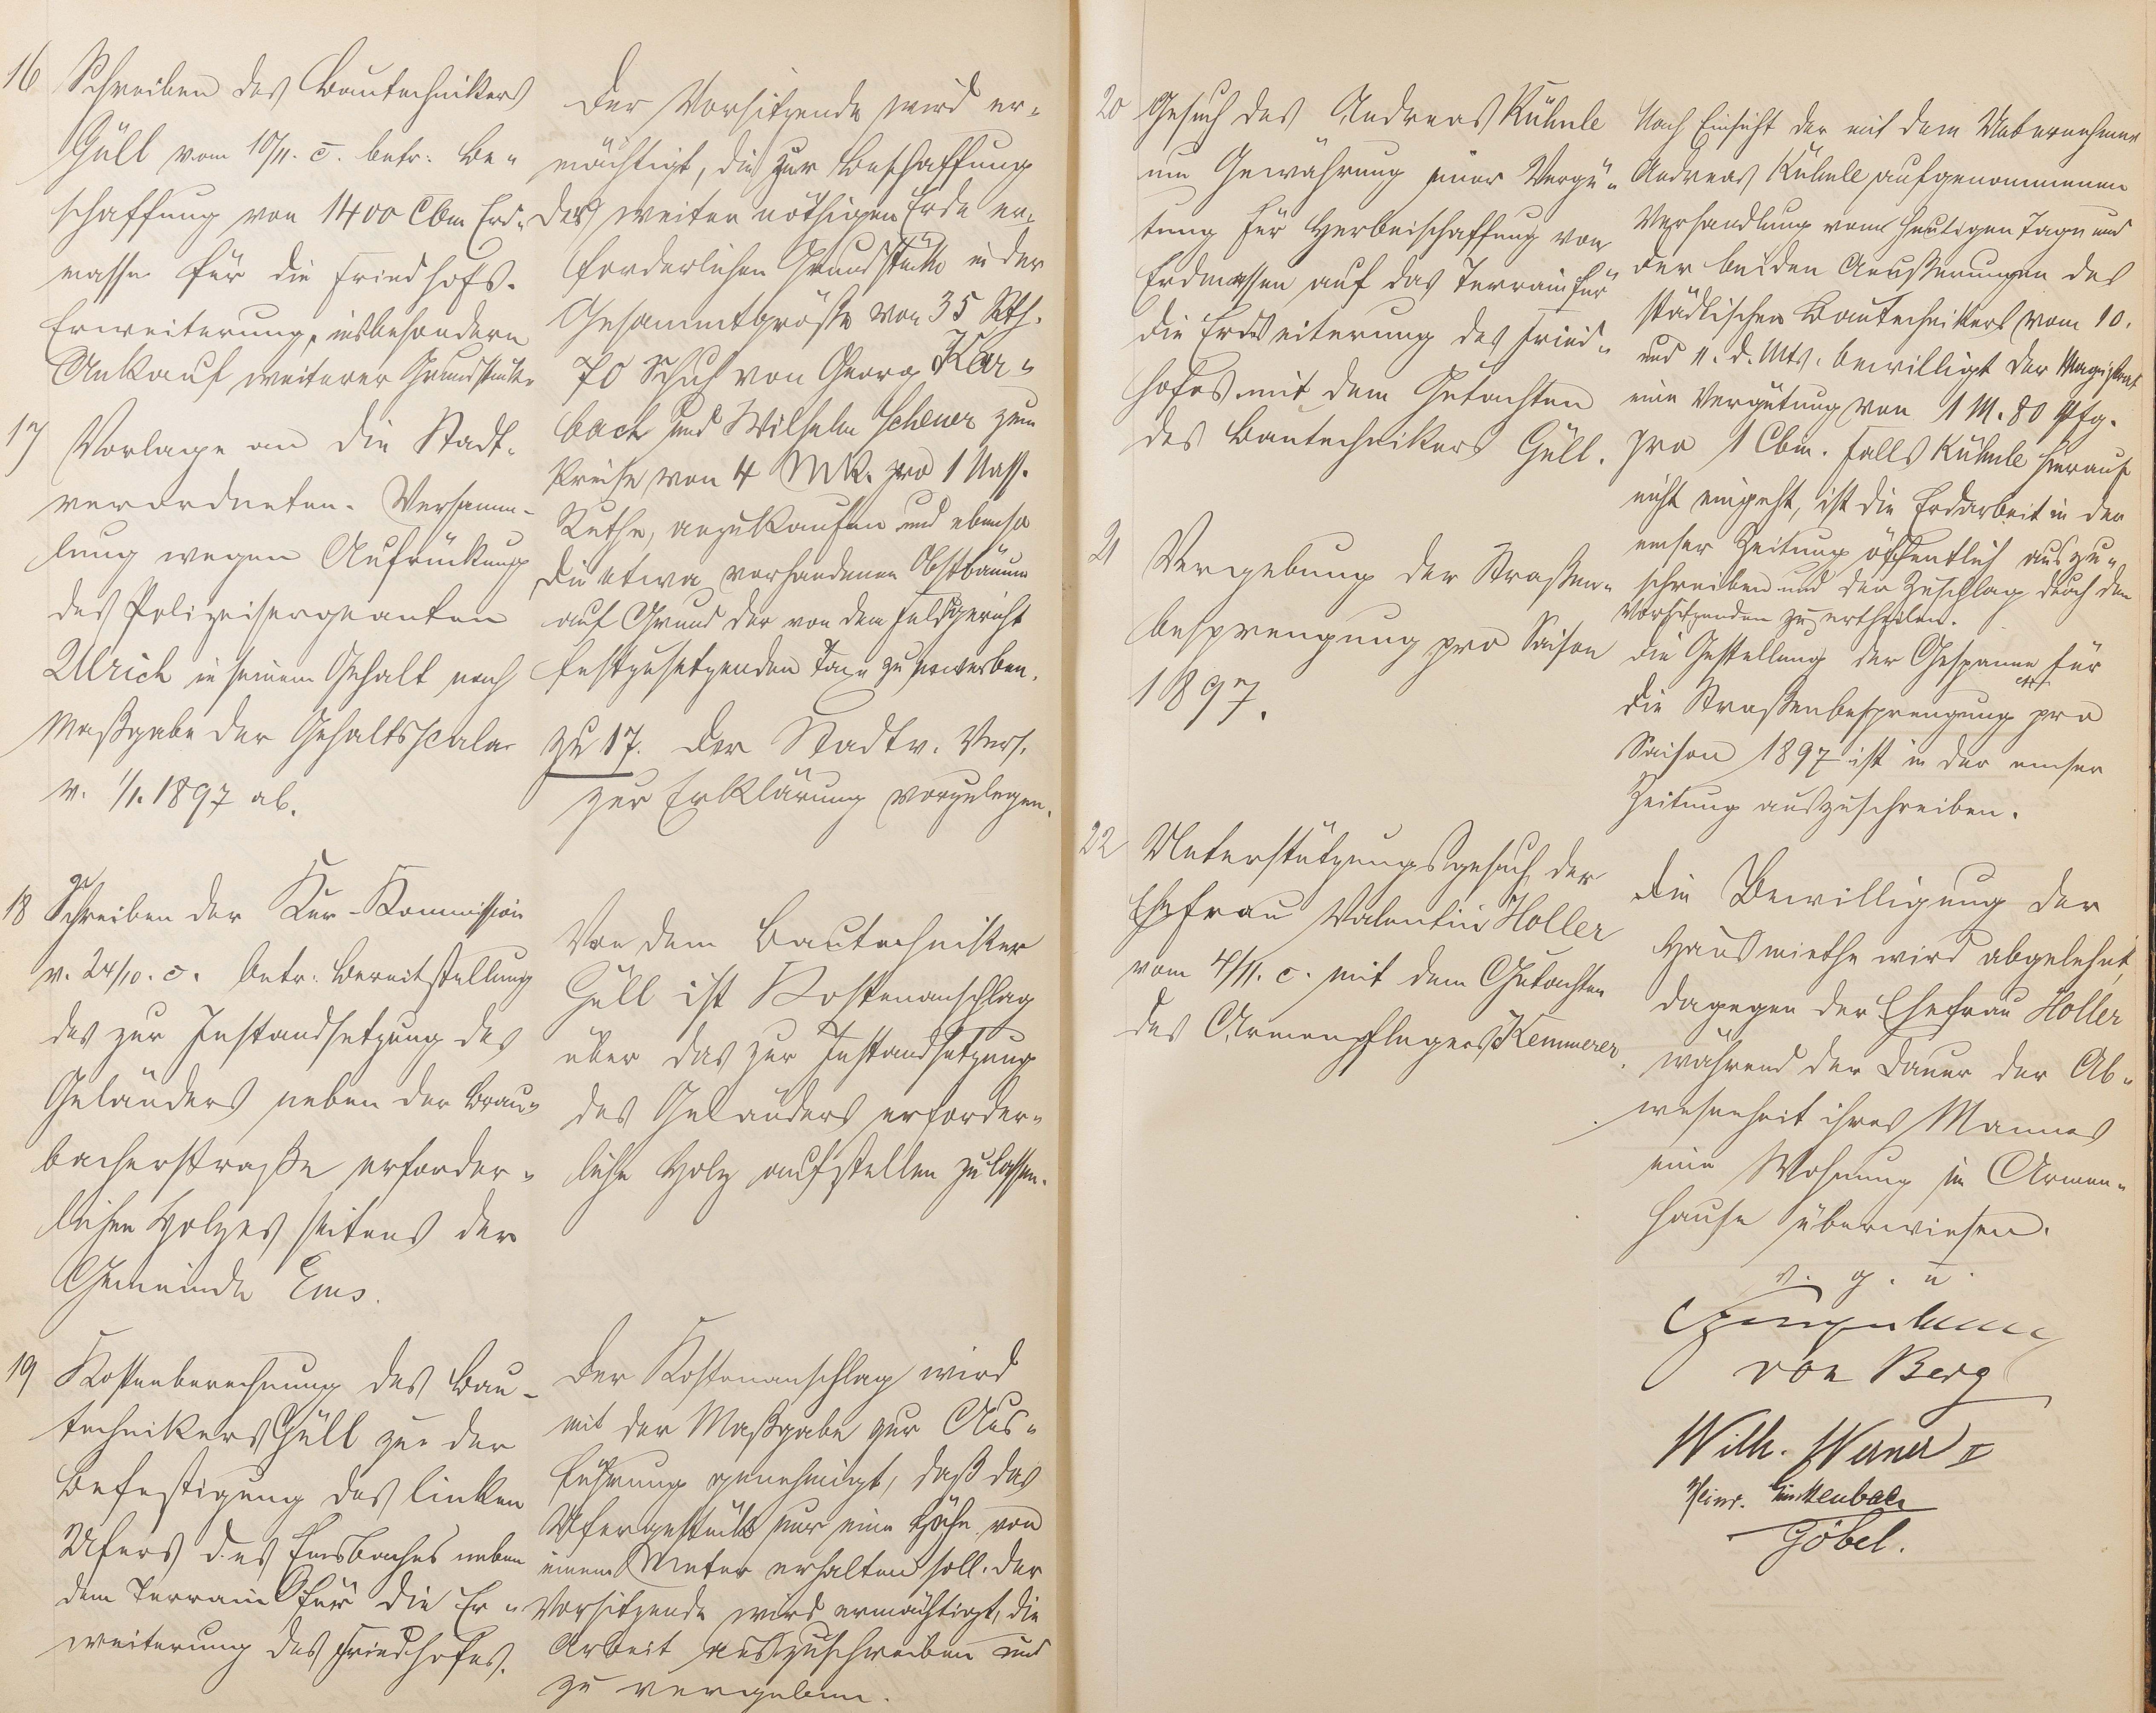 16 Schreiben des Bautechnikers
Güll vom 10/11. c. betr. Be-
schaffung von 1400 Cbm Erd-
masse für die Friedhofs-
Erweiterung, insbesondere
Ankauf weiterer Grundstücke
Der Vorsitzende wird er-
mächtigt, die zur Beschaffung
der weiter nöthigen Erde er-
forderlichen Grundstücke in der
Gesammtgröße von 35 Rth.
70 Schuh von Georg Kar-
bach und Wilhelm Scheuer zum
Preise von 4 Mk. pro 1 Nass.
Ruthe, anzukaufen und ebenso
die etwa vorhandenen Obstbäume
auf Grund der von dem Feldgericht
festzusetzenden Taxe zu erwerben.
17 Vorlage an die Stadt-
verordneten-Versamm-
lung wegen Aufrückung
des Polizeisergeanten
Ulrich in seinem Gehalt nach
Maßgabe der Gehaltsscala
v. 1/1. 1897 ab.
zu 17. Der Stadtv. Vers.
zur Erklärung vorzulegen.
18 Schreiben der Kur-Kommission
v. 24/10. c. betr. Bereitstellung
des zur Instandsetzung des
Geländers neben der Brau-
bacherstraße erforder-
lichen Holzes seitens der
Gemeinde Ems.
Von dem Bautechniker
Güll ist Kostenanschlag
über das zur Instandsetzung
des Geländers erforder-
liche Holz aufstellen zu lassen.
19 Kostenberechnung des Bau-
technikers Güll zu der
Befestigung des linken
Ufers des Emsbaches neben
dem Terrain für die Er-
weiterung des Friedhofes.
Der Kostenanschlag wird
mit der Maßgabe zur Aus-
führung genehmigt, daß das
Ufergestück nur eine Höhe von
einem Meter erhalten soll. Der
Vorsitzende wird ermächtigt, die
Arbeit auszuschreiben und
zu vergeben.
20 Gesuch des Andreas Kühnle
um Gewährung einer Vergü-
tung für Herbeischaffung von
Erdmassen auf das Terrain für
die Erweiterung des Fried-
hofes mit dem Gutachten
des Bautechnikers Güll.
Nach Einsicht der mit dem Unternehmer
Andreas Kühnle aufgenommenen
Verhandlung vom heutigen Tage und
der beiden Aeußerungen des
städtischen Bautechnikers vom 10.
und 11. d. Mts. bewilligt der Magistrat
eine Vergütung von 1 M. 80 Pfg.
pro 1 Cbm. Falls Kühnle hierauf
nicht eingeht, ist die Erdarbeit in der
emser Zeitung öffentlich auszu-
schreiben und der Zuschlag durch den
Vorsitzenden zu ertheilen.
21 Vergebung der Straßen-
besprengung pro Saison
1897.
Die Gestellung der Gespanne für
die Straßenbesprengung pro
Saison 1897 ist in der emser
Zeitung auszuschreiben.
22 Unterstützungsgesuch der
Ehefrau Valentin Holler
vom 4/11. c. mit dem Gutachten
des Armenpflegers Kemmerer.
Die Bewilligung der
Hausmiethe wird abgelehnt,
dagegen der Ehefrau Holler
während der Dauer der Ab-
wesenheit ihres Mannes
eine Wohnung im Armen-
hause überwiesen.
v. g. u.
von Berg
Wilh. Werner II
Heinr. Linkenbach
Göbel.